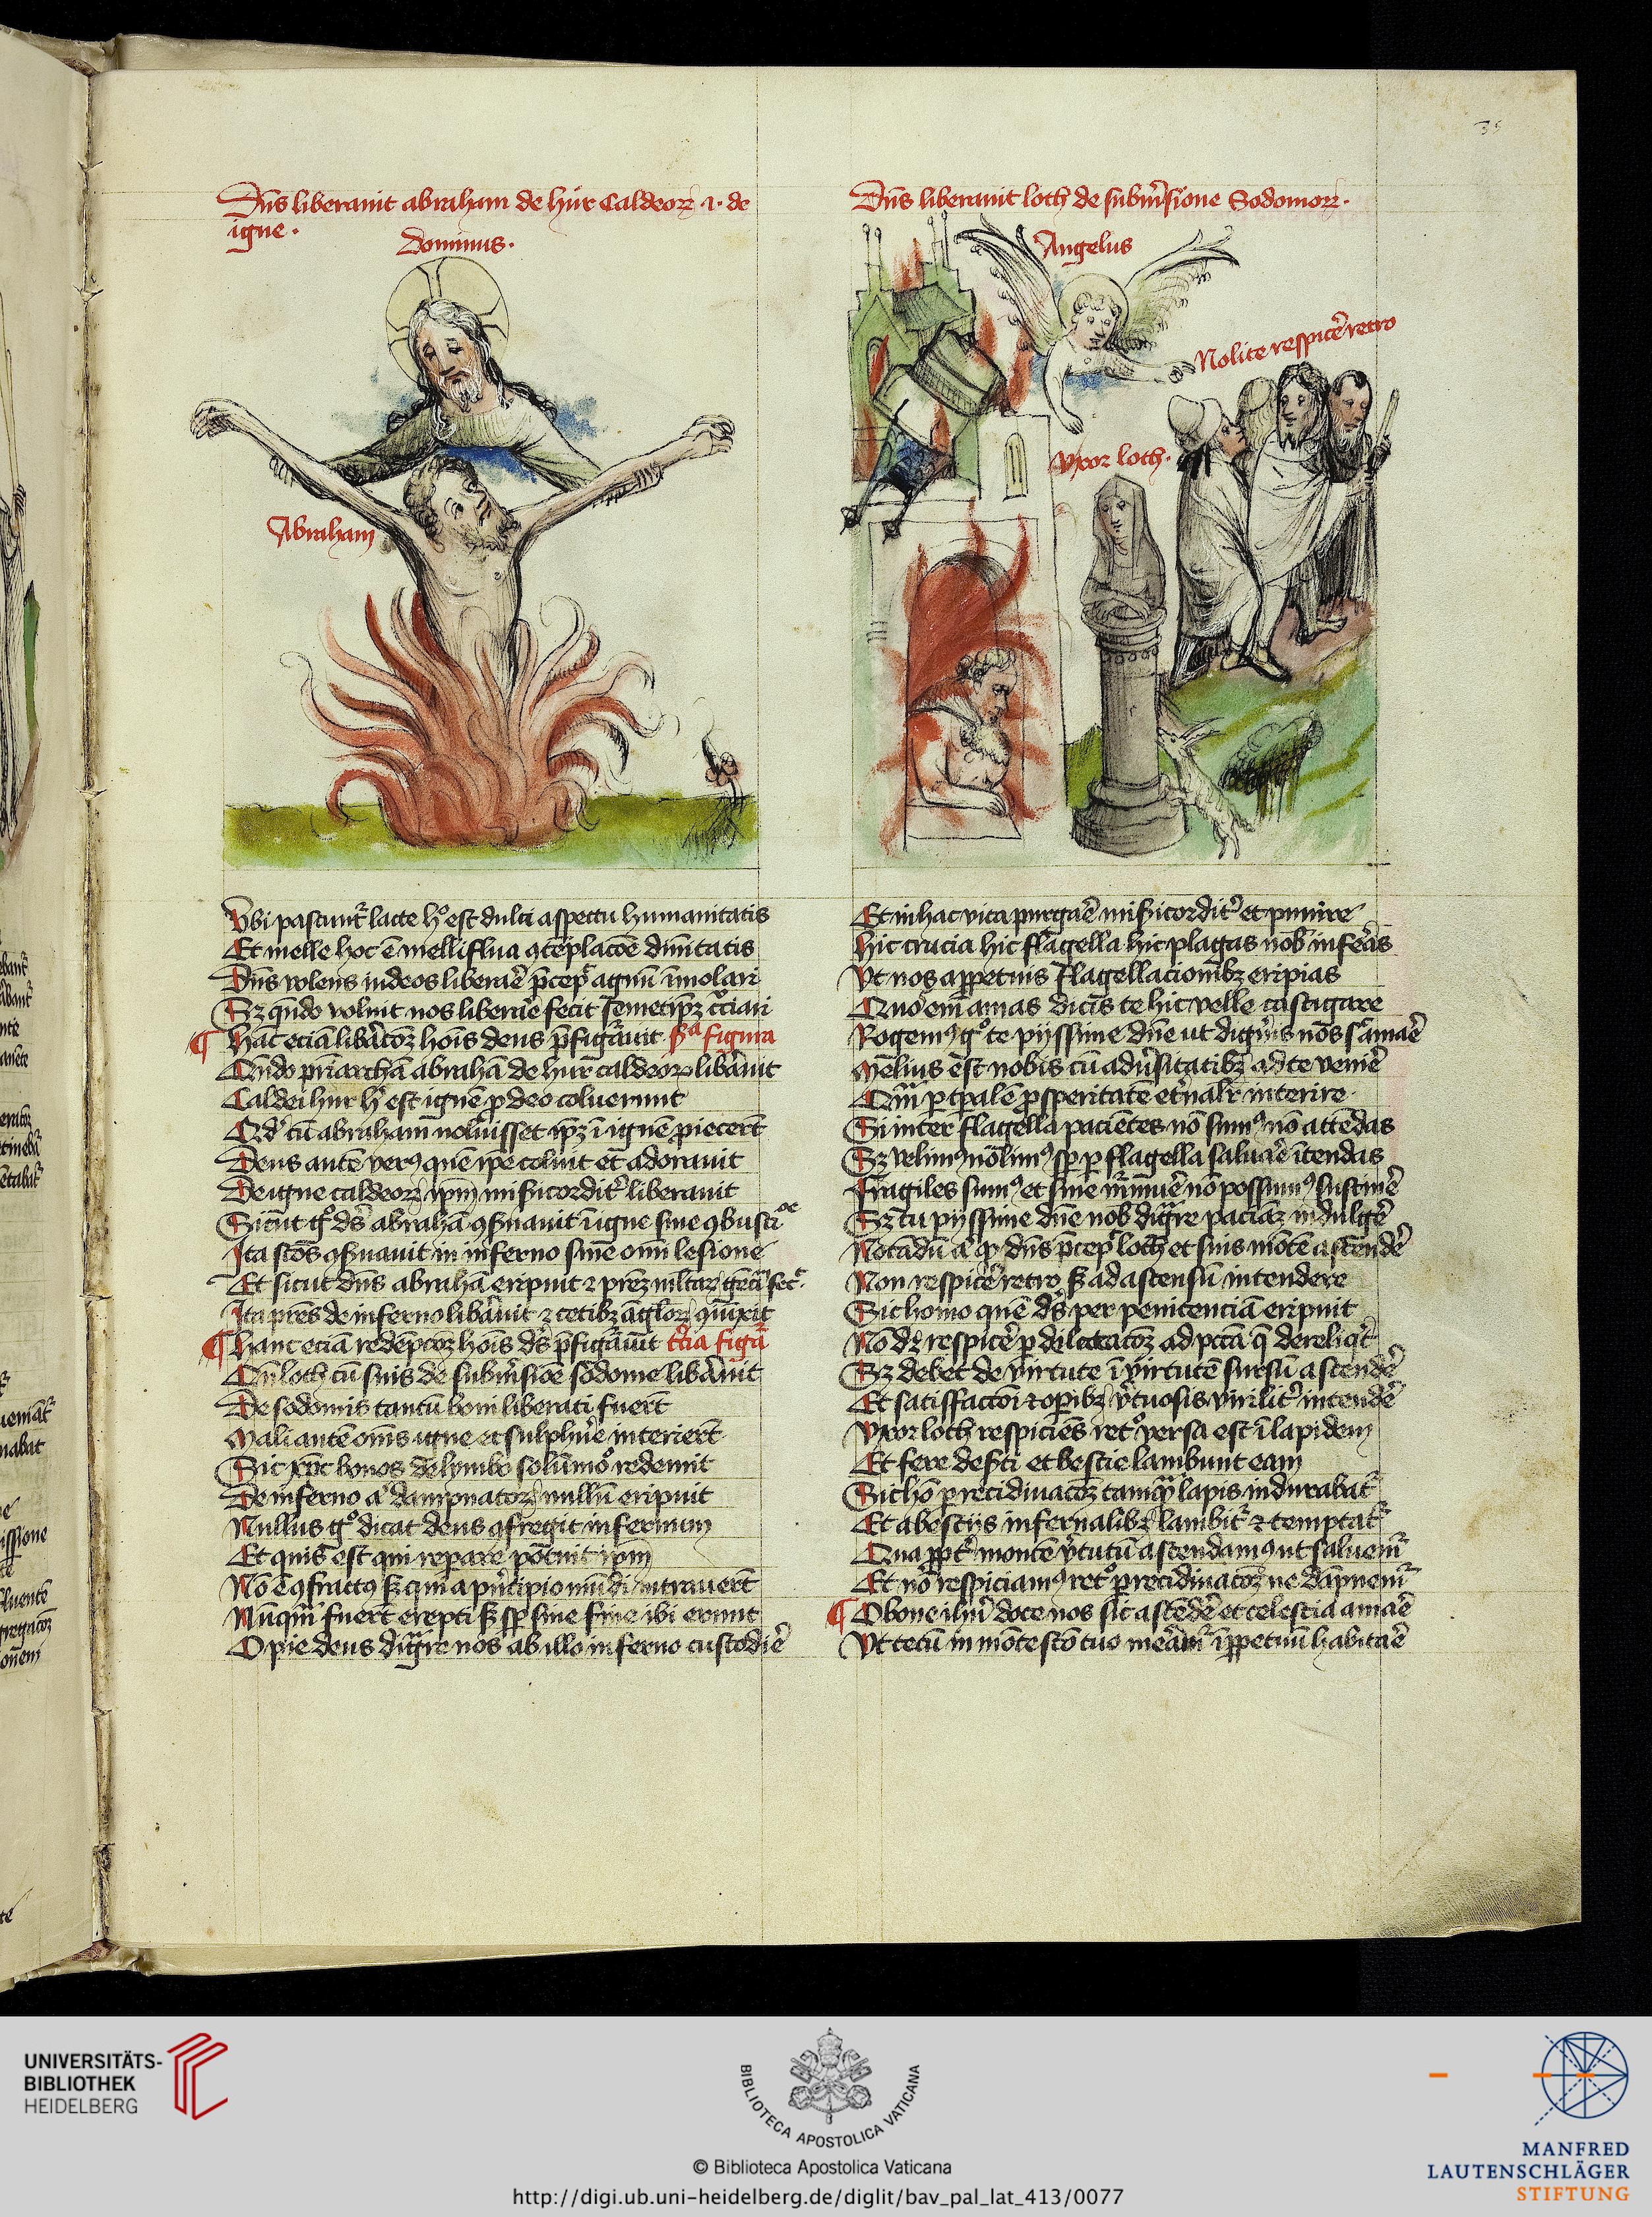 35
Dn̄s liberauit abraham de hur caldeoꝝ .i. de
igne .
dominus .
Abraham
Vbi pascunt᷑ lacte h° est dulci aspectu humanitatis
Et melle hoc ē melliflua ꝯtēplacōe diuītatis
Dn̄s volens iudeos liberar̄e p̄cep᷑ agnū īmolari
Sꝫ qn̄do voluit nos liberar̄e fecit semetip̄ꝫ
¶ Hāc eciā lib̓acōꝫ hōis deus p̄fig᷑auit figura
Qn̄do pri̅archā abrahā de hur caldeoꝝ lib̓auit
Caldei hur h° est ignē ꝓ deo coluerunt
Qd̓ cū abraham noluisset ip̄ꝫ ī ignē ꝓiecer̄t
Deus autē verꝰ quē ip̄e coluit et adorauit
De igne caldeoꝝ ip̄m mis̓icordit̓ liberauit
Sicut g° ds̄ abrahā ꝯs̓uauit ī igne sine ꝯbusti°ē
Ita scōs ꝯs̓uauit in inferno sine om̄i lesione
Et sicut dn̄s abrahā eripuit ⁊ pr̄eꝫ mltaꝝ gēciū fec᷑.
Ita pr̄es de inferno lib̓auit ⁊ cetibꝫ āgloꝝ
¶ Hanc eciā redēpcōꝫ hōis ds̄ p̄fig᷑auit t̓cia fig᷑a
Qn̄ loth cū suis de subm̓sioē sodome lib̓auit
De sodomis tantū boni liberati fuer̄t
Mali autē om̄s igne et sulphur̄e interier̄t
Sic xp̄c bonos de lymbo solūmō redemit
De inferno aū dampnatoꝝ nullū eripuit
Nullus g° dicat deus ꝯfregit infernum
Et quis est qui repare potuit ip̄m
Nō ē ꝯfractꝰ sꝫ qui a p̓ncipio mūdi intrauer̄t
Nūqm̄ fuer̄t erepti sꝫ sp̄ sine fine ibi erunt
O pie deus dig᷑re nos ab illo inferno custodir̄e
Dn̄s liberauit loth de subm̓sione Sodomoꝝ .
Angelus
Nolite respicer̄e retro
Vxor loth .
Et in hac vita purgar̄e mis̓icordit̓ et punire
Hic crucia hic flagella hic plagas nob̄ inferas
Vt nos a ꝑpetuis flagellacionībꝫ eripias
Quos em̄ amas dicis te hic velle castigare
Rogemꝰ g° te pijssime dn̄e ut dign̓is nos s᷑ amar̄e
Melius est nobis cū adu̓sitatibꝫ ad te venir̄e
Qm̄ ꝑ tꝑalē ꝓsperitatē et̓nalr̄ interire .
Si inter flagella paciētes nō sumꝰ nō attēdas
Sꝫ velimꝰ nolimꝰ sp̄ ꝑ flagella saluar̄e ītendas
Fragiles sumꝰ et sine m̓m̓ur̄e nō possumꝰ sustiner̄e
Sꝫ tu pijssime dn̄e nob̄ dig᷑re paciāꝫ indulger̄e
Notādū aū ꝙ dn̄s p̄cep᷑ loth et suis mōtē ascender̄e
Non respicer̄e retro sꝫ ad ascensū intendere
Sic homo quē ds̄ per penitenciā eripuit
Nō dꝫ respicer̄e ꝑ dilectacōꝫ ad pccā q̄ dereliq̓t
Sꝫ debet de virtute ī virtutē sursū ascender̄e
Et satisfactōi ⁊ opibꝫ v̓tuosis virilit̓ intender̄e
Vxor loth respiciēs ret° versa est ī lapidem
Et fere des̓ti et bestie lambunt eam
Sic hō ꝑ recidiuacōꝫ tamqᷓ lapis indurabat᷑
Et a bestijs infernalibꝫ lambit᷑ ⁊ temptat᷑
Qua ꝓpt̓ montē v̓tutū ascendamꝰ ut saluem᷑
Et nō respiciamꝰ ret° ꝑ recidiuacōꝫ ne dāpnem᷑
¶ O bone ih̄u doce nos sic ascēder̄e et celestia amar̄e
Vt tecū in mōte scō tuo meam᷑ īꝑpetuū habitar̄e
UNIVERSITÄTS-
BIBLIOTHEK
HEIDELBERG
BIBLIOTECA APOSTOLICA VATICANA
© Biblioteca Apostolica Vaticana
http://digi.ub.uni-heidelberg.de/diglit/bav_pal_lat_413/0077
MANFRED
LAUTENSCHLÄGER
STIFTUNG